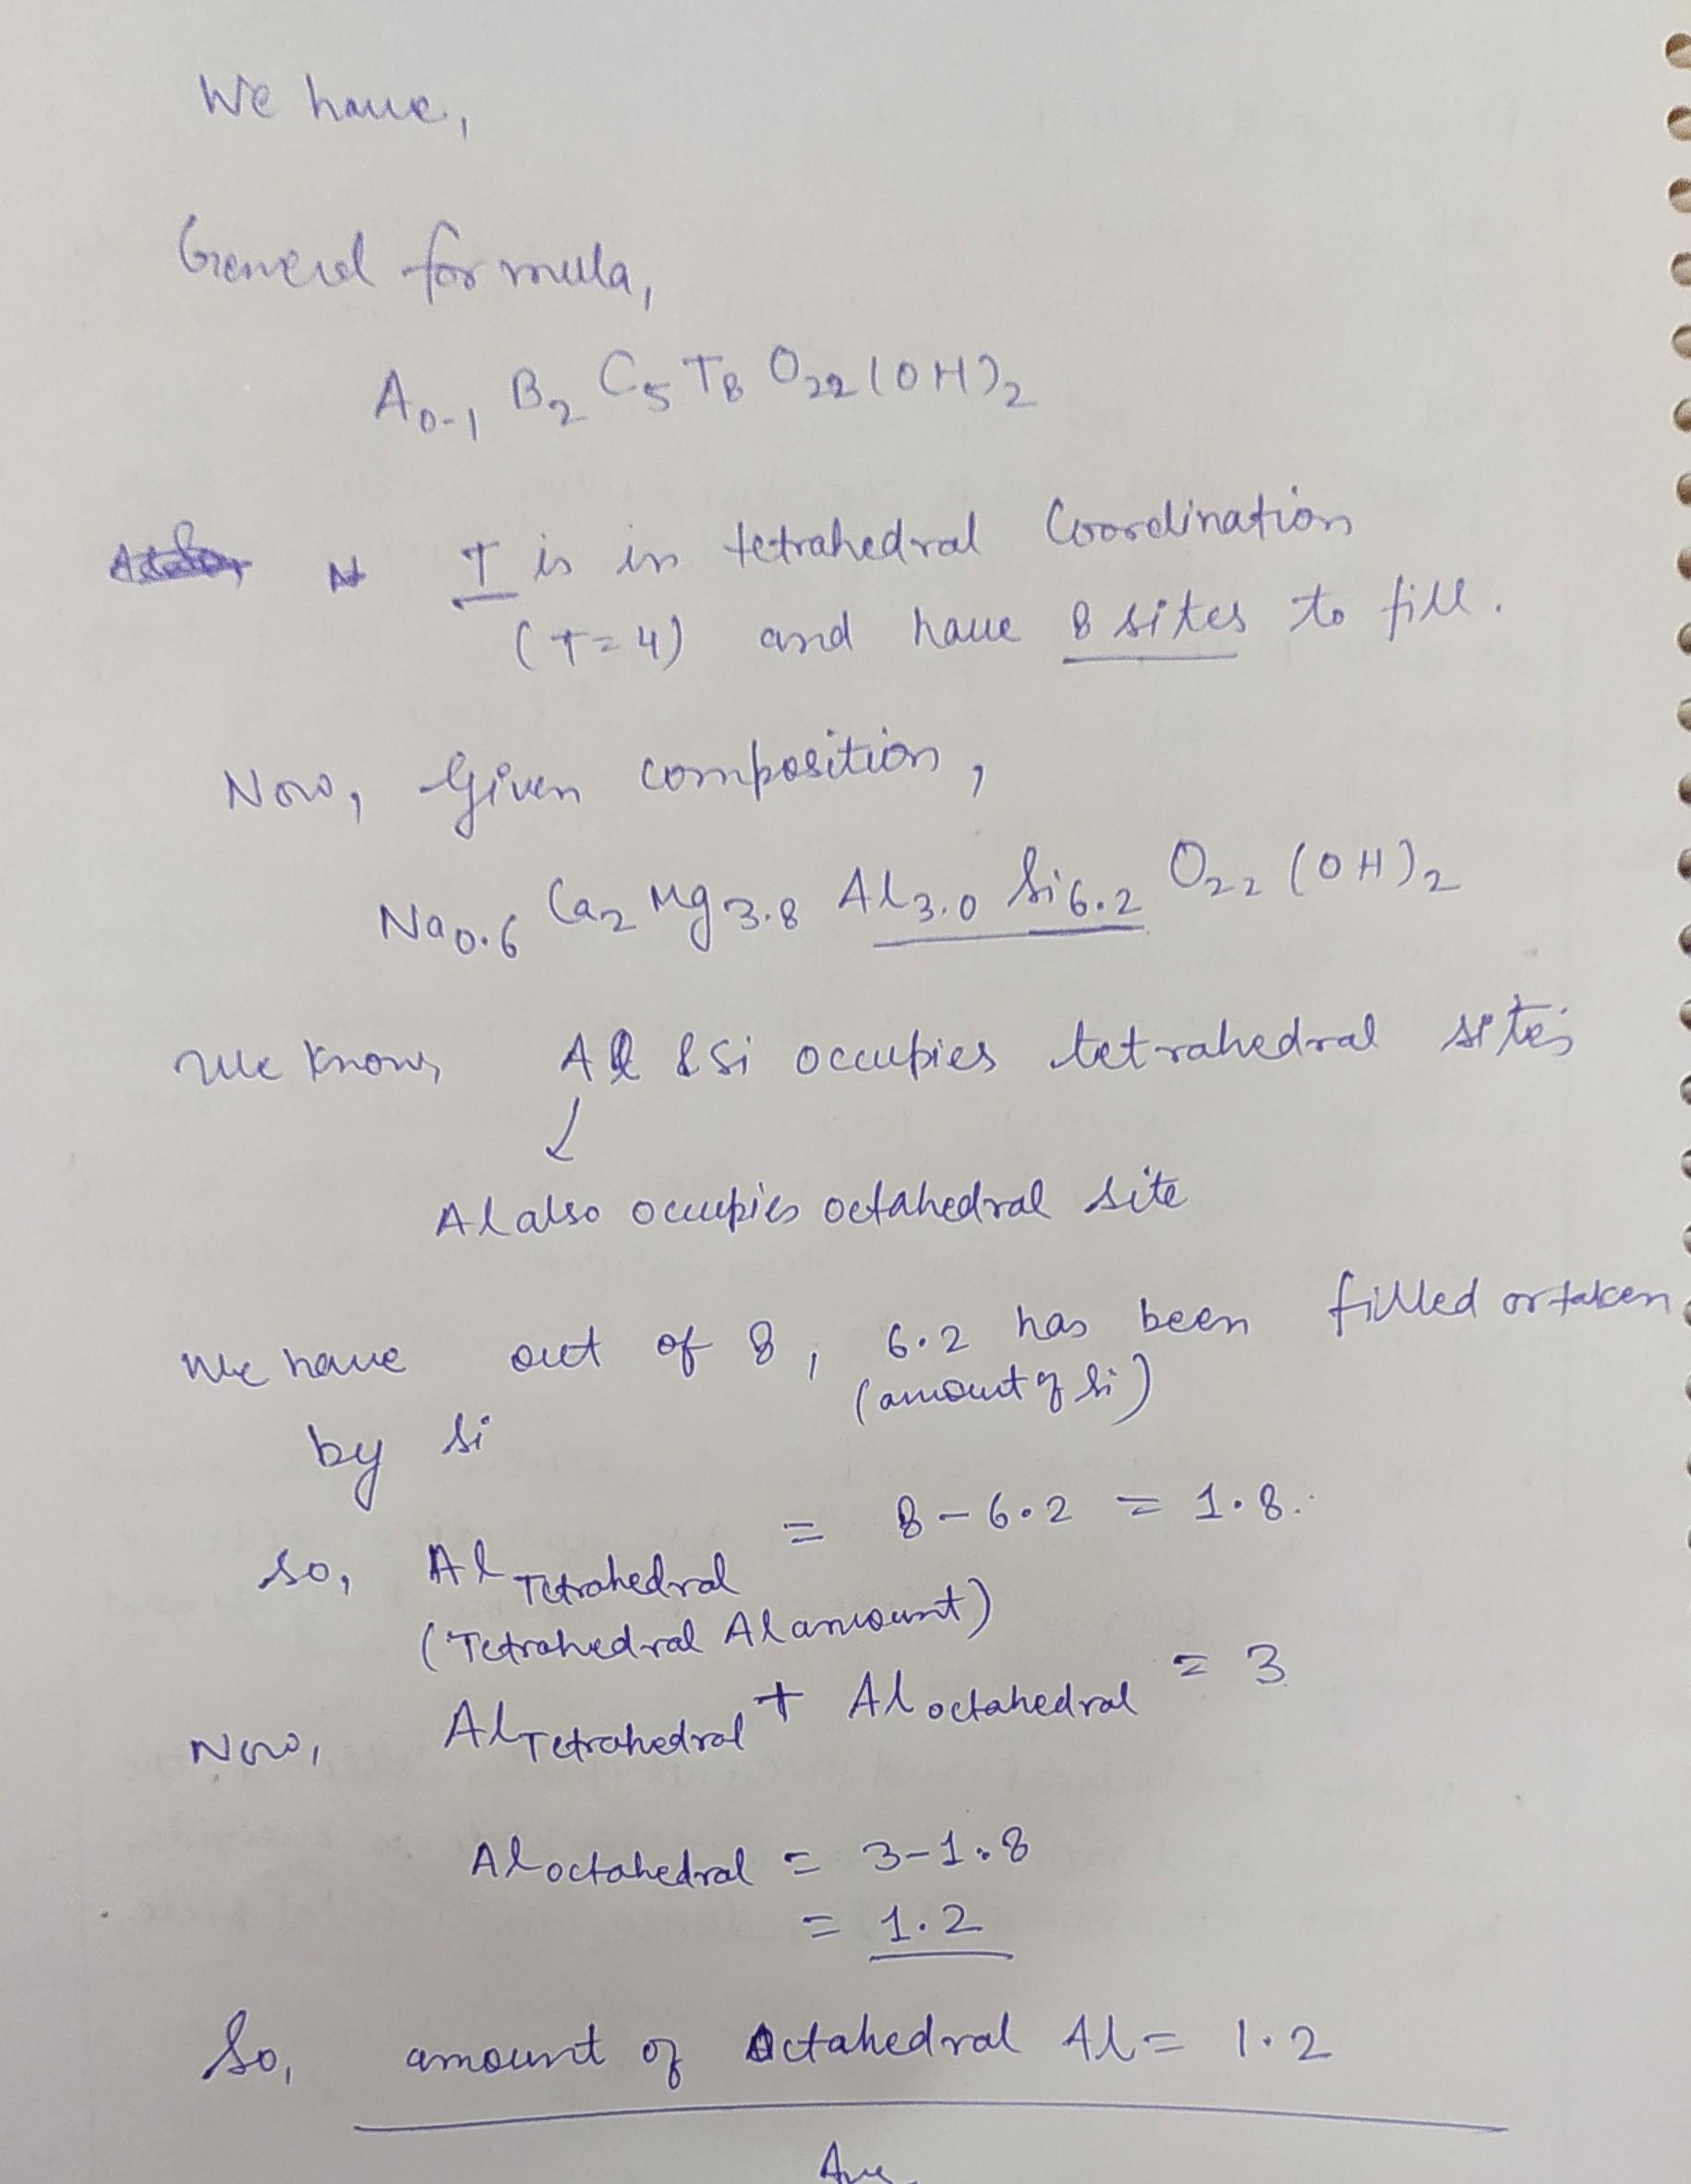 We have,
General formula,
A₀₋₁ B₂ C₅ T₈ O₂₂ (OH)₂
T is in tetrahedral Coordination
(T=4) and have 8 sites to fill.
Now, Given composition,
Na₀.₆ Ca₂ Mg₃.₈ Al₃.₀ Si₆.₂ O₂₂ (OH)₂
We know, Al & Si occupies tetrahedral sites
↓
Al also occupies octahedral site
We have out of 8, 6.2 has been filled or taken
(amount of Si)
by Si
So, Al Tetrahedral = 8 - 6.2 = 1.8.
(Tetrahedral Al amount)
Now, Al Tetrahedral + Al octahedral = 3
Al octahedral = 3-1.8
= 1.2
So, amount of Octahedral Al = 1.2
Ans